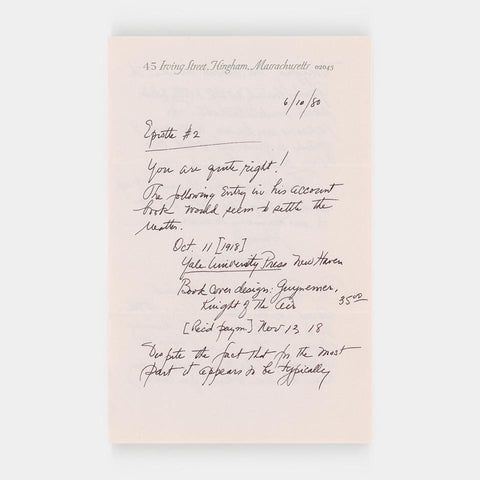 45 Irving Street, Hingham, Massachusetts 02043
6/10/80
Epistle #2
You are quite right!
The following Entry in his account
book would seem to settle the
matter.
Oct. 11 [1918]
Yale University Press New Haven
Book Cover design: Guynemer,
Knight of the Air 35 00
[Paid paym] Nov 13 18
Despite the fact that for the most
part it appears to be typically